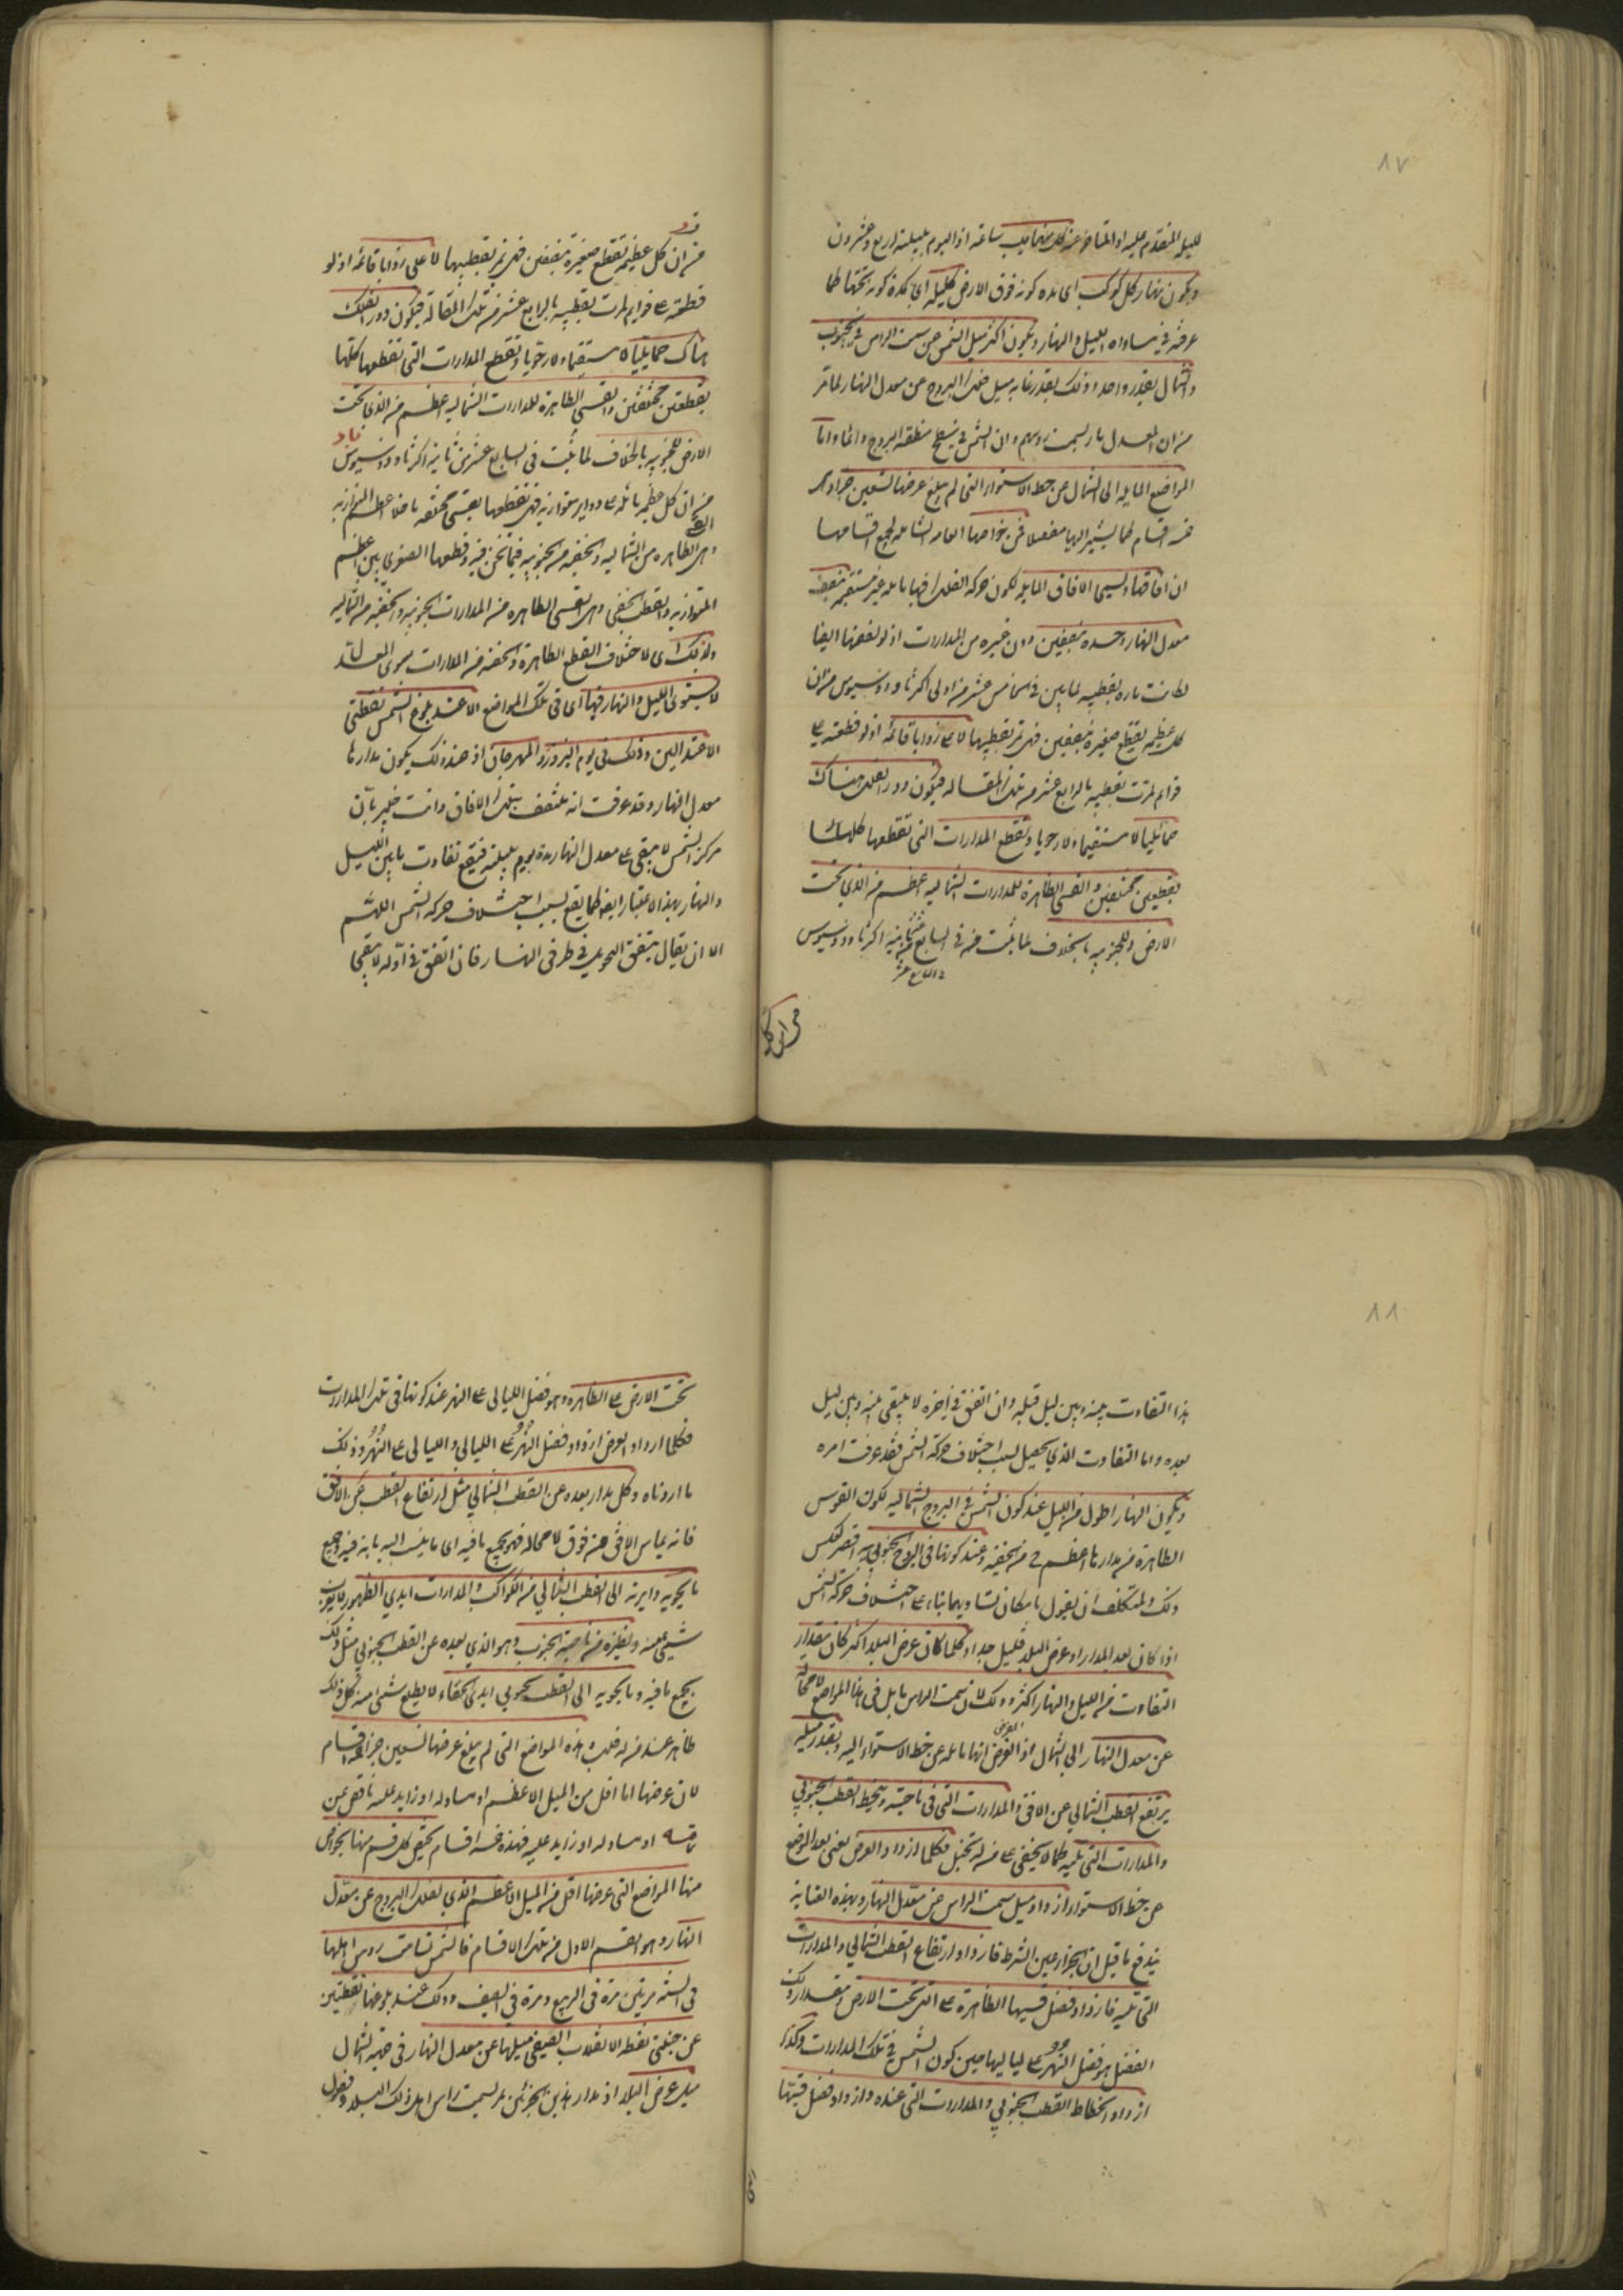 ٨٧
لليله المتقدم عليه او المتاخر عنه لكل منهما يب ساعة اذ اليوم بليلته اربع وعشرون
ويكون نهار كل كوكب اى مدة كونه فوق الارض كليله اى كمدة كونه تحتها لما
عرفت فى تساوى الليل والنهار ويكون اكثر ميل الشمس عن سمت الراس فى الجنوب
والشمال بقدر واحد وذلك بقدر غاية ميل فلك البروج عن معدل النهار لما مر
من ان المعدل مار بسمت رؤسهم وان الشمس فى سطح منطقة البروج دائما واما
المواضع المايله الى الشمال عن خط الاستواء التى لم يبلغ عرضها تسعين جزءا وهى
خمسة اقسام كما يشير اليها مفصلا فمن خواصها العامه الشامله لجميع اقسامها
ان افاقها وتسمى الافاق المايله لكون حركة الفلك فيها مايله غير مستقيمه تنصف
معدل النهار وحده بنصفين دون غيره من المدارات اذ لو نصفتها ايضا
لكانت ماره بقطبيه لما بين فى الخامس عشر من اولى اكر ثاودوسيوس من ان
كل عظيمه تقطع صغيرة بنصفين فهى تمر بقطبيها لا على زوايا قائمة اذ لو قطعته على
قوايم لمرت بقطبيه بالرابع عشر من تلك المقاله فيكون دور الفلك هناك
حمائليا لا مستقيما ولا رحويا وتقطع المدارات التى تقطعها كلها
بقطعتين مختلفتين والقسى الظاهرة للمدارات الشماليه اعظم من الذى تحت
الارض وللجنوبيه بالخلاف لما ثبت فى السابع عشر من ثانيه اكر ثاودوسيوس
من ان كل
من ان كل عظيمة تقطع صغيرة بنصفين فهى تمر بقطبيها لا على زوايا قائمة اذ لو
قطعته على قوايم لمرت بقطبيه بالرابع عشر من تلك المقالة فيكون دور الفلك
هناك حمايليا لا مستقيما ولا رحويا وتقطع المدارات التى تقطعها كلها
بقطعتين مختلفتين والقسى الظاهرة للمدارات الشماليه اعظم من الذى تحت
الارض وللجنوبيه بالخلاف لما ثبت فى السابع عشر من ثانية اكر ثاودوسيوس
من ان كل عظيمه مائله على دواير متوازيه فهى تقطعها بقسى مختلفه ما خلا اعظم المتوازيه
وهى الظاهره من الشماليه والخفيه من الجنوبيه فيما نحن فيه وقطعها الصغرى بين اعظم
المتوازيه والقطب الخفى وهى القسى الظاهره من المدارات الجنوبيه والخفيه من الشماليه
ولذلك اى لاختلاف القطع الظاهرة والخفيه من المدارات سوى المعدل
لا يستوى الليل والنهار فيها اى فى تلك المواضع الا عند بلوغ الشمس نقطتى
الاعتدالين وذلك فى يوم النيروز والمهرجان اذ عند ذلك يكون مدارها
معدل النهار وقد عرفت انه منتصف بتلك الافاق وانت خبير بان
مركز الشمس لا يبقى على معدل النهار مدة يوم بليلته فيقع تفاوت ما بين الليل
والنهار بهذا الاعتبار ايضا كما يقع بسبب اختلاف حركة الشمس اللهم
الا ان يقال يتفق التحويل فى طرفى النهار فان اتفق فى اوله لا يبقى
٨٨
هذا التفاوت بينه وبين ليل قبله وان اتفق فى اخره لا يبقى بينه وبين ليل
بعده واما التفاوت الذى يحصل بسبب اختلاف حركة الشمس فقد عرفت امره
ويكون النهار اطول من الليل عند كون الشمس فى البروج الشماليه لكون القوس
الظاهرة من مدارها اعظم من الخفيه وعند كونها فى البروج الجنوبيه اقصر لعكس
ذلك وللمتكلف ان يقول بامكان تساويهما بناء على اختلاف حركة الشمس
اذا كان بعد المدار او عرض البلد قليلا جدا وكلما كان عرض البلد اكثر كان مقدار
التفاوت بين الليل والنهار اكثر وذلك لان سمت الراس مايل فى هذه المواضع لا محالة
عن معدل النهار الى الشمال اذ الفرض انها مايله عن خط الاستواء اليه وبقدر ميله
يرتفع القطب الشمالى عن الافق والمدارات التى فى ناحيته وينحط القطب الجنوبى
والمدارات التى تليه كما لا يخفى على من له تخيل فكلما ازداد العرض يعنى بعد الموضع
عن خط الاستواء ازداد ميل سمت الراس عن معدل النهار وبهذه العناية
يندفع ما قيل ان الجزاء عين الشرط فازداد ارتفاع القطب الشمالى والمدارات
التى تليه فازداد فضل قسيها الظاهرة على التى تحت الارض وبقدر ذلك
الفضل هو فضل النهر على لياليها حين كون الشمس فى تلك المدارات وكذا
ازداد انحطاط القطب الجنوبى والمدارات التى عنده وازداد فضل قسيها
تحت الارض على الظاهره وهو فضل الليالى على النهر عند كونها فى تلك المدارات
فكلما ازداد العرض ازداد فضل النهر على الليالى والليالى على النهر وذلك
ما اردناه وكل مدار بعده عن القطب الشمالى مثل ارتفاع القطب عن الافق
فانه يماس الافق من فوق لا محاله فهو بجميع ما فيه اى ما ينسب اليه بانه فيه وجميع
ما يحويه دايرته الى القطب الشمالى من الكواكب والمدارات ابدى الظهور لا يغرب
شئ منه ونظيره من ناحية الجنوب وهو الذى بعده عن القطب الجنوبى مثل ذلك
بجميع ما فيه وما يحويه الى القطب الجنوبى ابدى الخفاء لا يطلع شئ منه كل ذلك
ظاهر عند من له قلب وهذه المواضع التى لم يبلغ عرضها تسعين جزءا خمسة اقسام
لان عرضها اما اقل من الميل الاعظم او مساو له او زايد عليه ناقص عن
تمامه او مساو له او زايد عليه فهذه خمسة اقسام يختص كل قسم منها بخواص
منها المواضع التى عرضها اقل من الميل الاعظم الذى لفلك البروج عن معدل
النهار وهو القسم الاول من تلك الاقسام فالشمس تسامت رؤس اهلها
فى السنة مرتين مرة فى الربيع ومرة فى الصيف وذلك عند بلوغها نقطتين
عن جنبتى نقطة الانقلاب الصيفى ميلهما عن معدل النهار فى جهة الشمال
مثل عرض البلد اذ مدار هذين الجزئين يمر بسمت راس اهل ذلك البلد وفصول